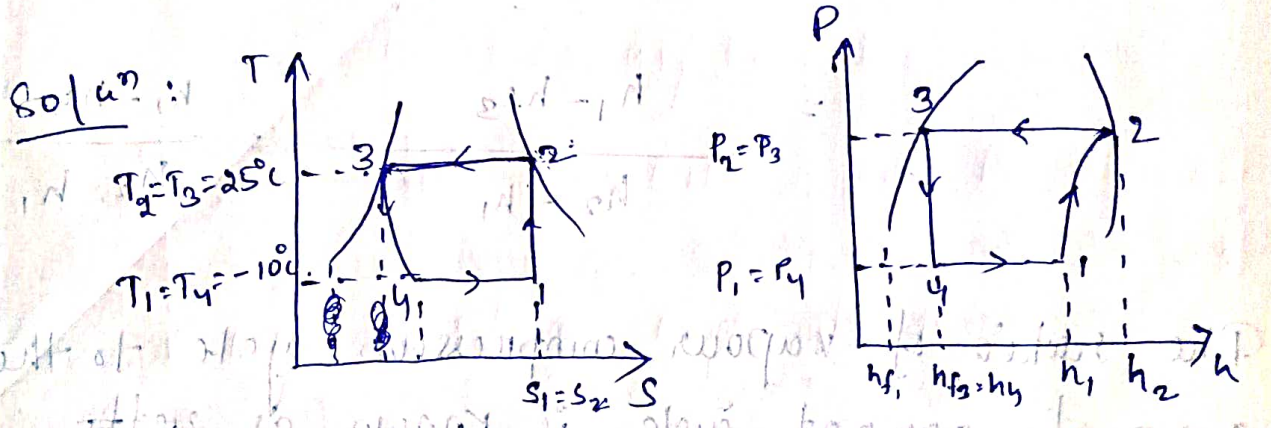 Solu^n :
T
3
2
T₂=T₃=25°C
T₁=T₄=-10°C
4
1
S₁=S₂
S
P
3
2
P₂=P₃
P₁=P₄
4
1
hf₁
hf₃=h₄
h₁
h₂
h